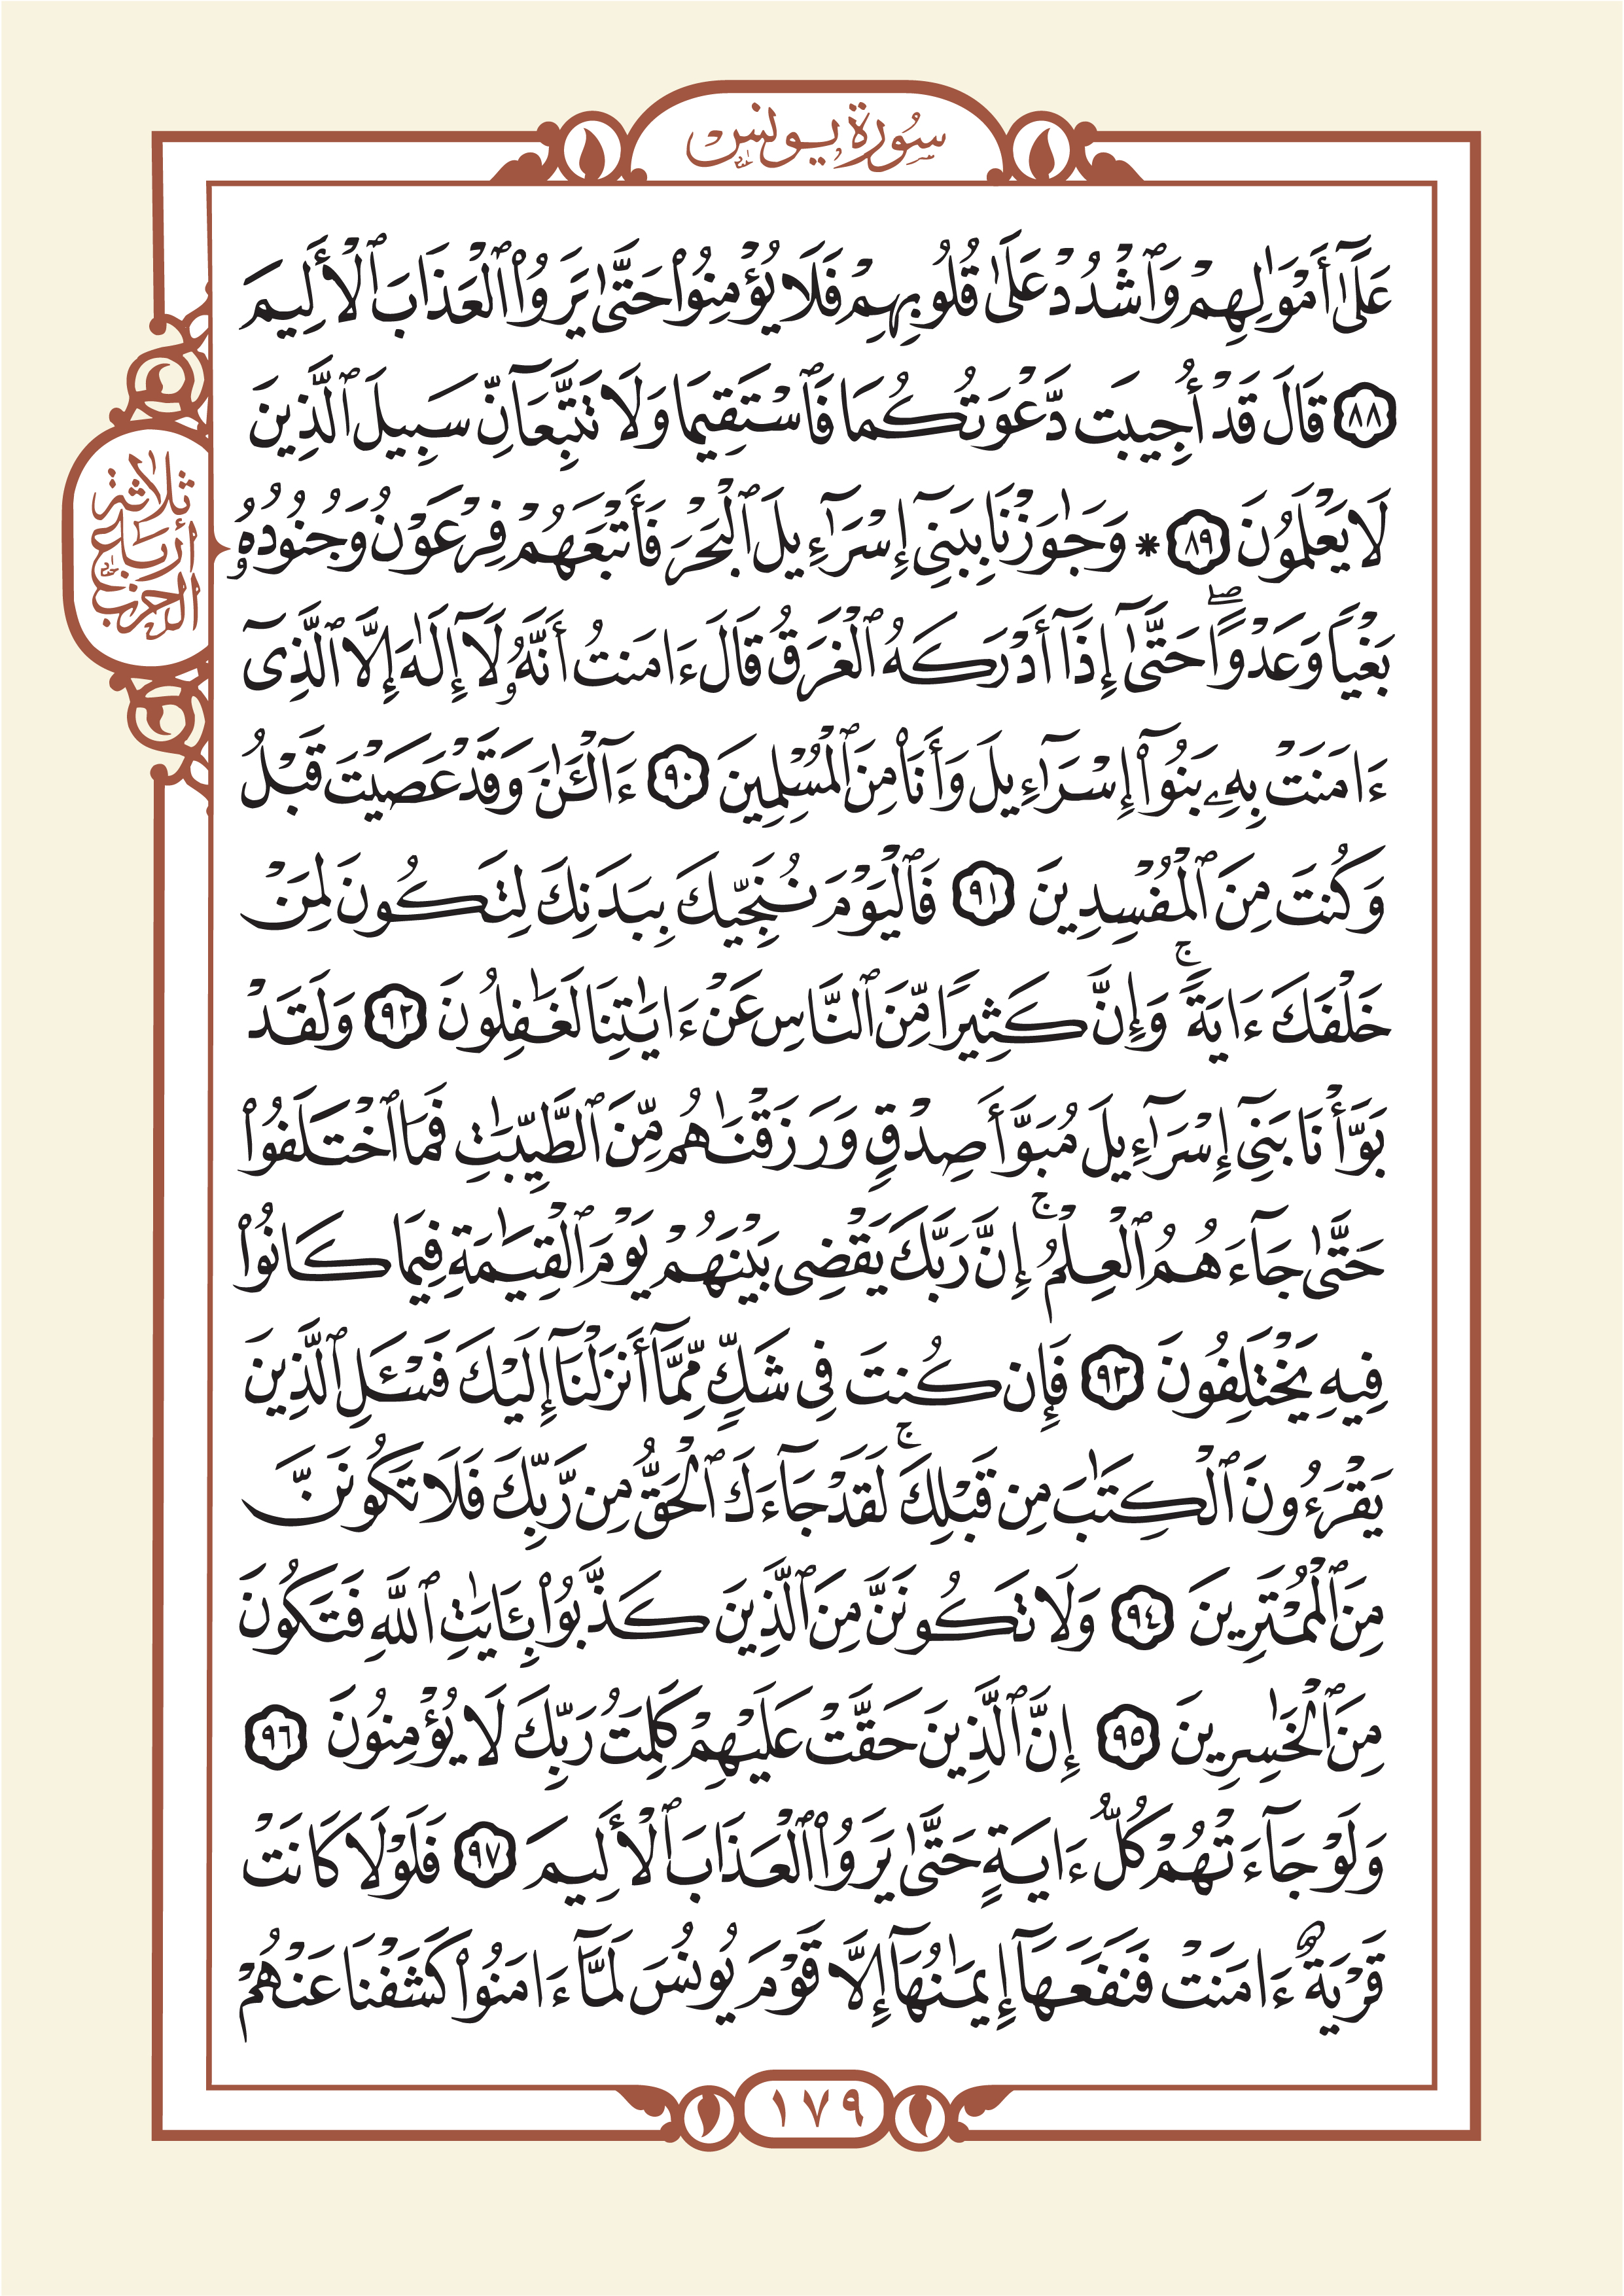 سُورَةُ يُونُسَ
عَلَىٰٓ أَمْوَٰلِهِمْ وَٱشْدُدْ عَلَىٰ قُلُوبِهِمْ فَلَا يُؤْمِنُوا۟ حَتَّىٰ يَرَوُا۟ ٱلْعَذَابَ ٱلْأَلِيمَ
٨٨ قَالَ قَدْ أُجِيبَت دَّعْوَتُكُمَا فَٱسْتَقِيمَا وَلَا تَتَّبِعَآنِّ سَبِيلَ ٱلَّذِينَ
ثلاثة أرباع الحزب
لَا يَعْلَمُونَ ٨٩ * وَجَٰوَزْنَا بِبَنِىٓ إِسْرَٰٓءِيلَ ٱلْبَحْرَ فَأَتْبَعَهُمْ فِرْعَوْنُ وَجُنُودُهُۥ
بَغْيًا وَعَدْوًا ۖ حَتَّىٰٓ إِذَآ أَدْرَكَهُ ٱلْغَرَقُ قَالَ ءَامَنتُ أَنَّهُۥ لَآ إِلَٰهَ إِلَّا ٱلَّذِىٓ
ءَامَنَتْ بِهِۦ بَنُوٓا۟ إِسْرَٰٓءِيلَ وَأَنَا۠ مِنَ ٱلْمُسْلِمِينَ ٩٠ ءَآلْـَٰٔنَ وَقَدْ عَصَيْتَ قَبْلُ
وَكُنتَ مِنَ ٱلْمُفْسِدِينَ ٩١ فَٱلْيَوْمَ نُنَجِّيكَ بِبَدَنِكَ لِتَكُونَ لِمَنْ
خَلْفَكَ ءَايَةً ۚ وَإِنَّ كَثِيرًا مِّنَ ٱلنَّاسِ عَنْ ءَايَٰتِنَا لَغَٰفِلُونَ ٩٢ وَلَقَدْ
بَوَّأْنَا بَنِىٓ إِسْرَٰٓءِيلَ مُبَوَّأَ صِدْقٍ وَرَزَقْنَٰهُم مِّنَ ٱلطَّيِّبَٰتِ فَمَا ٱخْتَلَفُوا۟
حَتَّىٰ جَآءَهُمُ ٱلْعِلْمُ ۚ إِنَّ رَبَّكَ يَقْضِى بَيْنَهُمْ يَوْمَ ٱلْقِيَٰمَةِ فِيمَا كَانُوا۟
فِيهِ يَخْتَلِفُونَ ٩٣ فَإِن كُنتَ فِى شَكٍّ مِّمَّآ أَنزَلْنَآ إِلَيْكَ فَسْـَٔلِ ٱلَّذِينَ
يَقْرَءُونَ ٱلْكِتَٰبَ مِن قَبْلِكَ ۚ لَقَدْ جَآءَكَ ٱلْحَقُّ مِن رَّبِّكَ فَلَا تَكُونَنَّ
مِنَ ٱلْمُمْتَرِينَ ٩٤ وَلَا تَكُونَنَّ مِنَ ٱلَّذِينَ كَذَّبُوا۟ بِـَٔايَٰتِ ٱللَّهِ فَتَكُونَ
مِنَ ٱلْخَٰسِرِينَ ٩٥ إِنَّ ٱلَّذِينَ حَقَّتْ عَلَيْهِمْ كَلِمَتُ رَبِّكَ لَا يُؤْمِنُونَ ٩٦
وَلَوْ جَآءَتْهُمْ كُلُّ ءَايَةٍ حَتَّىٰ يَرَوُا۟ ٱلْعَذَابَ ٱلْأَلِيمَ ٩٧ فَلَوْلَا كَانَتْ
قَرْيَةٌ ءَامَنَتْ فَنَفَعَهَآ إِيمَٰنُهَآ إِلَّا قَوْمَ يُونُسَ لَمَّآ ءَامَنُوا۟ كَشَفْنَا عَنْهُمْ
١٧٩